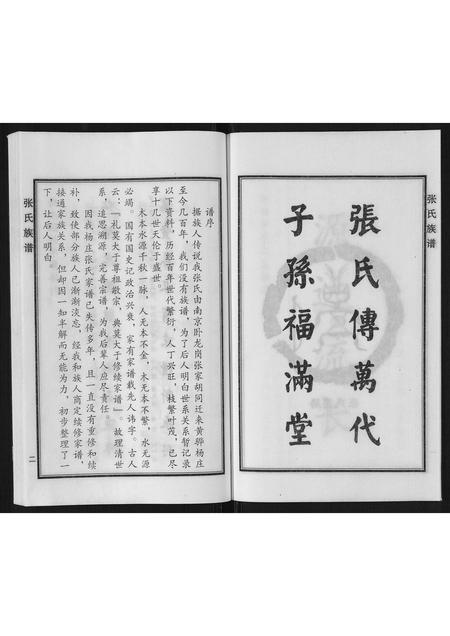 张氏族谱
張氏傳萬代
子孫福滿堂
谱序
据族人传说我张氏由南京卧龙岗张家胡同迁来黄骅杨庄
至今几百年，我们没有族谱，为了后人明白世系关系暂记录
以下资料，历经百年世代繁衍，人丁兴旺，枝繁叶茂，已尽
享十几世天伦于盛世。
木本水源千秋一脉，人无本不金，木无本不繁，水无源
必竭。国有国史记政治兴衰，家有家谱载先人讳字。古人
云：「礼莫大于尊祖敬宗，典莫大于修续家谱」。故理清世
系，追思溯源，完善宗谱，为我后辈人应尽责任。
因我杨庄张氏家谱已失传多年，且一直没有重修和续
补，致使部分族人已渐渐淡忘，经我和族人商定续修家谱，
接通家族关系，但却因一知半解而无能为力，初步整理了一
下，让后人明白。
张氏族谱
二